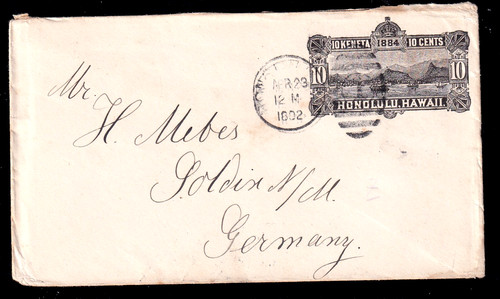 10 KENETA 1884 10 CENTS
10 10
HONOLULU, HAWAII.
APR 23
12 M
1892
Mr.
H. Mebes
Soldin N/M.
Germany.